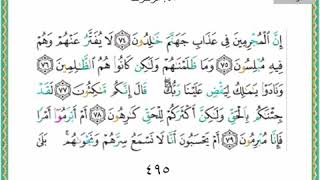 إِنَّ الْمُجْرِمِينَ فِي عَذَابِ جَهَنَّمَ خَالِدُونَ ﴿٧٤﴾ لَا يُفَتَّرُ عَنْهُمْ وَهُمْ
فِيهِ مُبْلِسُونَ ﴿٧٥﴾ وَمَا ظَلَمْنَاهُمْ وَلَٰكِن كَانُوا هُمُ الظَّالِمِينَ ﴿٧٦﴾
وَنَادَوْا يَا مَالِكُ لِيَقْضِ عَلَيْنَا رَبُّكَ ۖ قَالَ إِنَّكُم مَّاكِثُونَ ﴿٧٧﴾ لَقَدْ
جِئْنَاكُم بِالْحَقِّ وَلَٰكِنَّ أَكْثَرَكُمْ لِلْحَقِّ كَارِهُونَ ﴿٧٨﴾ أَمْ أَبْرَمُوا أَمْرًا
فَإِنَّا مُبْرِمُونَ ﴿٧٩﴾ أَمْ يَحْسَبُونَ أَنَّا لَا نَسْمَعُ سِرَّهُمْ وَنَجْوَاهُم ۚ بَلَىٰ
٤٩٥